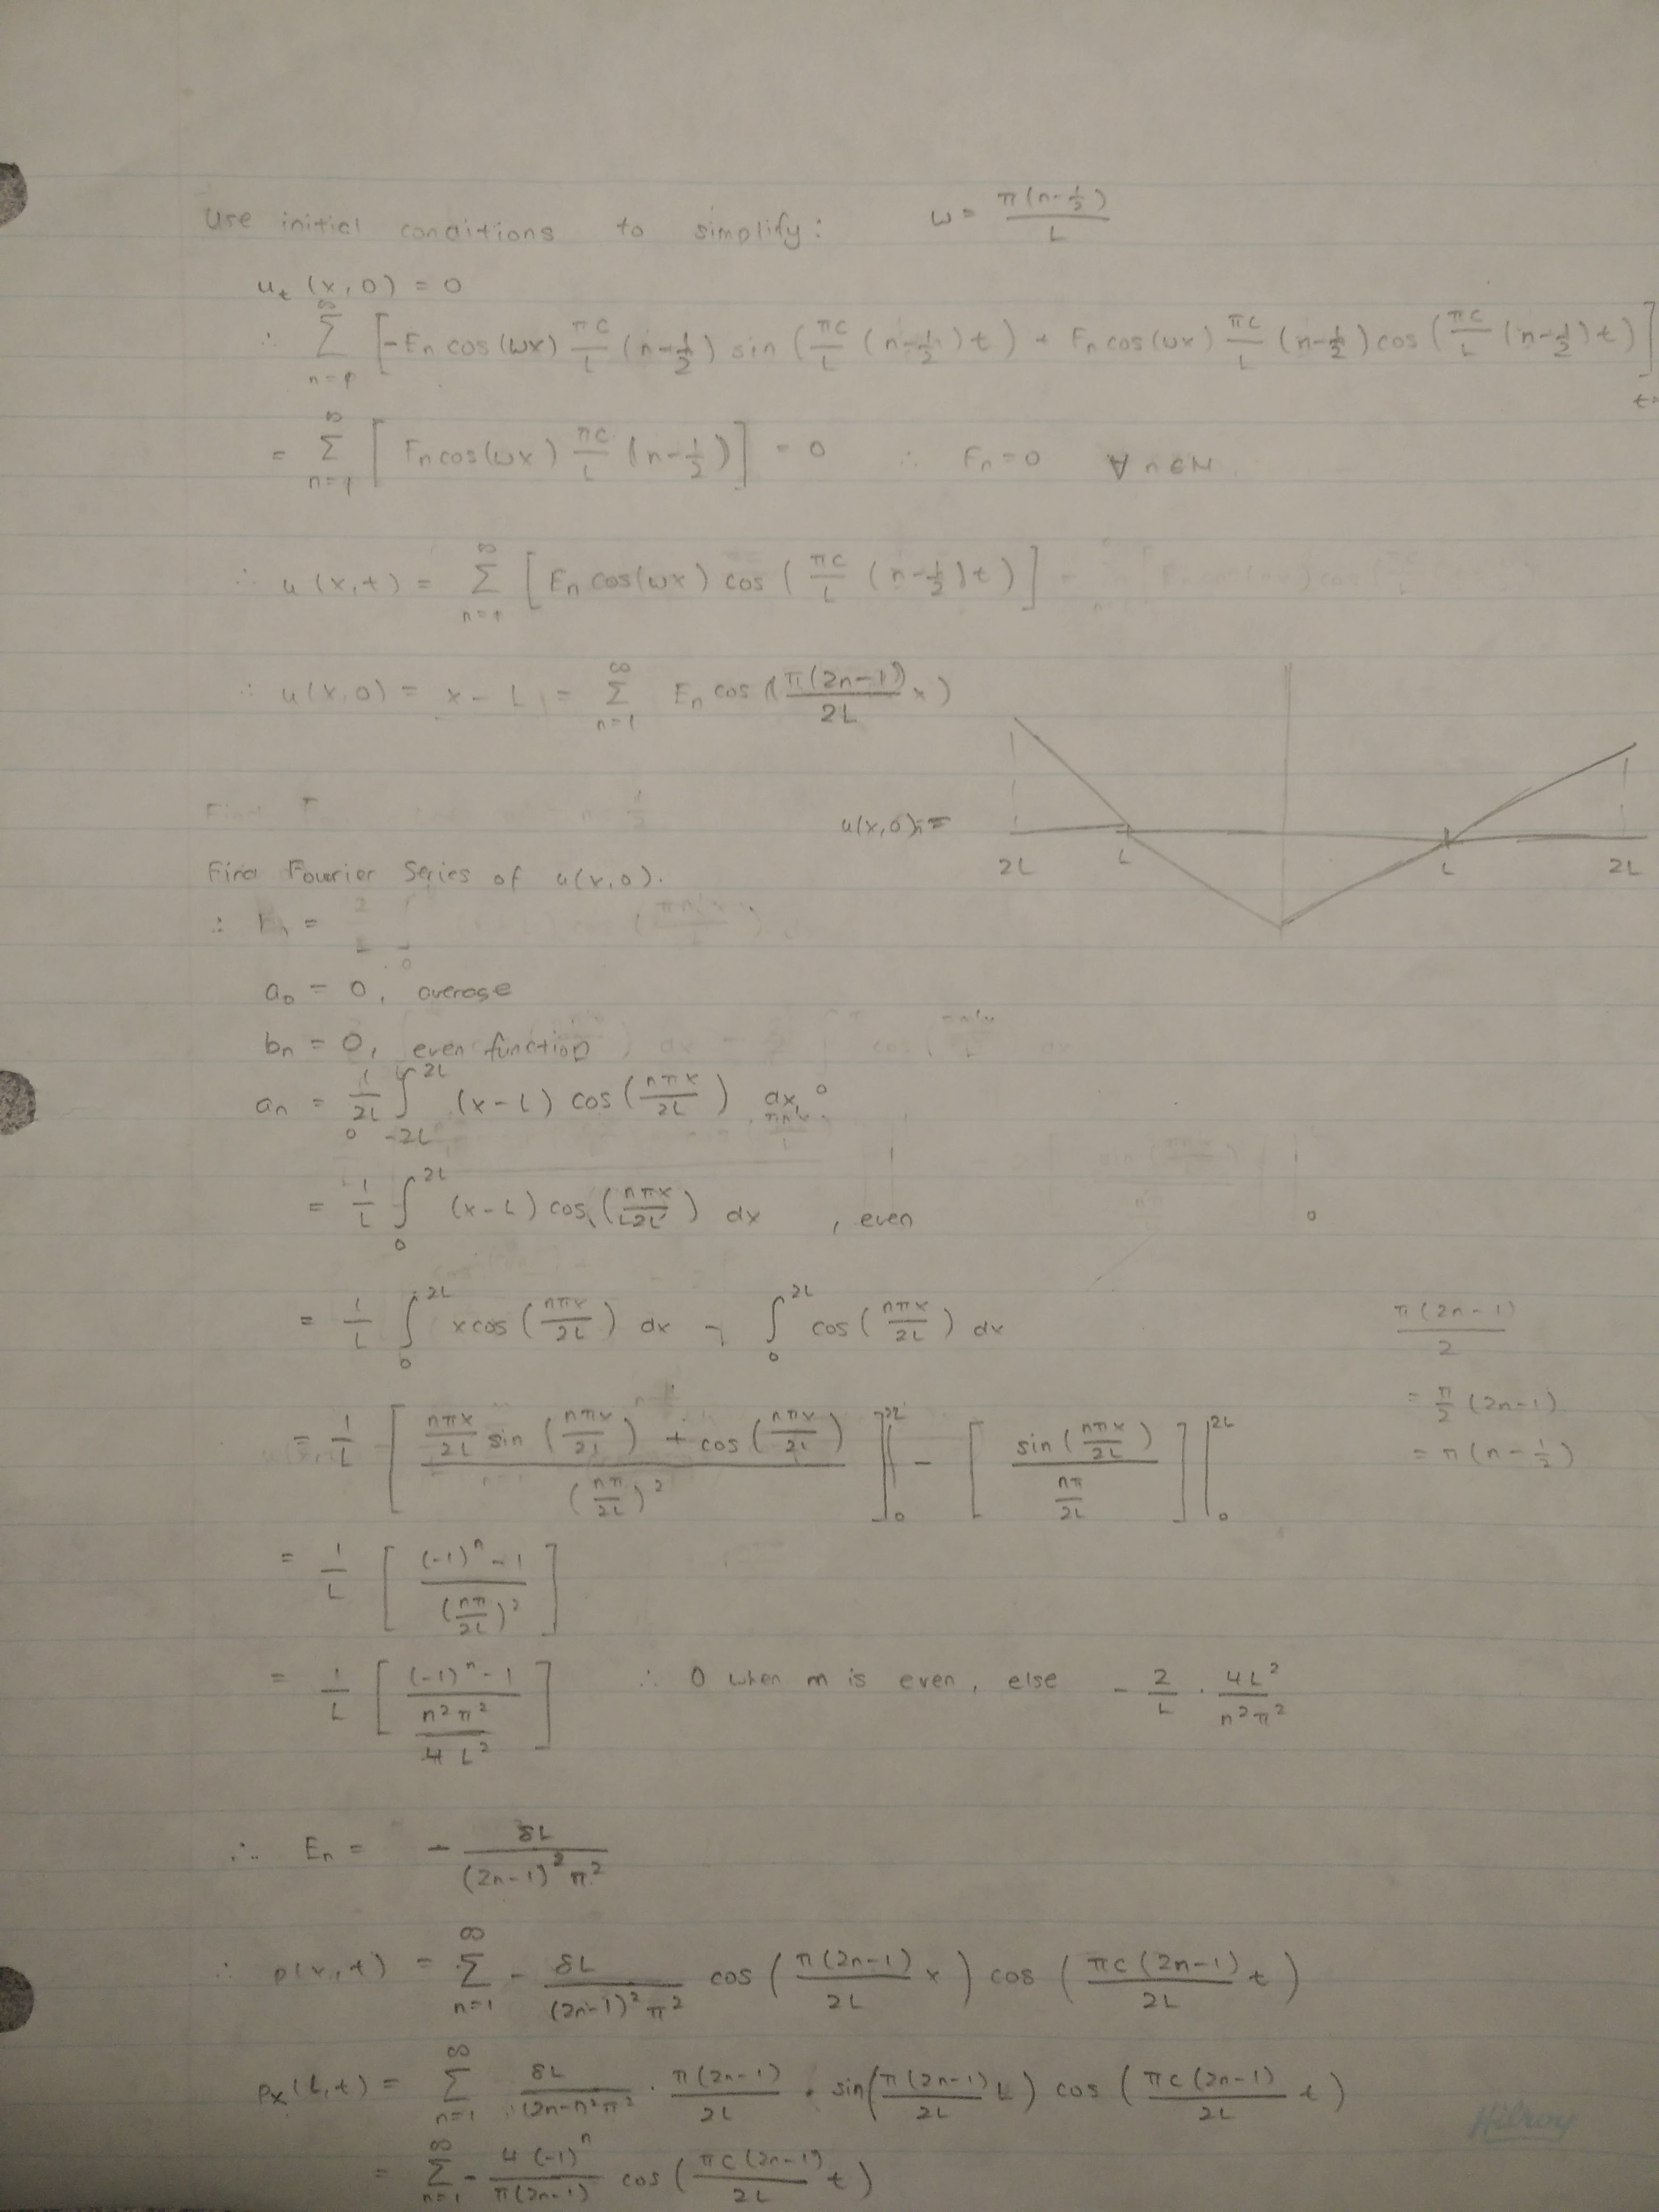 Use initial conditions to simplify: ω = π(n-1/2)/L
u_t (x,0) = 0
∴ Σ_{n=1}^{∞} [-E_n cos(ωx) πc/L (n-1/2) sin(πc/L (n-1/2)t) + F_n cos(ωx) πc/L (n-1/2) cos(πc/L (n-1/2)t)]
= Σ_{n=1}^{∞} [F_n cos(ωx) πc/L (n-1/2)] = 0 ∴ F_n = 0 ∀ n∈N
∴ u(x,t) = Σ_{n=1}^{∞} [E_n cos(ωx) cos(πc/L (n-1/2)t)]
∴ u(x,0) = x - L = Σ_{n=1}^{∞} E_n cos(π(2n-1)/2L x)
u(x,0) =
2L L L 2L
Find Fourier Series of u(x,0).
a_0 = 0, average
b_n = 0, even function
a_n = 1/2L ∫_{-2L}^{2L} (x-L) cos(nπx/2L) dx
= 1/L ∫_0^{2L} (x-L) cos(nπx/2L) dx , even
= 1/L ∫_0^{2L} x cos(nπx/2L) dx - ∫_0^{2L} cos(nπx/2L) dx
π(2n-1)/2
= π/2 (2n-1)
= π(n-1/2)
= 1/L [(nπx/2L sin(nπx/2L) + cos(nπx/2L))/(nπ/2L)^2]|_0^{2L} - [sin(nπx/2L)/(nπ/2L)]|_0^{2L}
= 1/L [((-1)^n - 1)/(nπ/2L)^2]
= 1/L [((-1)^n - 1)/(n^2π^2/4L^2)] ∴ 0 when n is even, else - 2/L · 4L^2/n^2π^2
∴ E_n = - 8L/(2n-1)^2π^2
∴ p(x,t) = Σ_{n=1}^{∞} - 8L/(2n-1)^2π^2 cos(π(2n-1)/2L x) cos(πc(2n-1)/2L t)
p_x(L,t) = Σ_{n=1}^{∞} 8L/(2n-1)^2π^2 · π(2n-1)/2L · sin(π(2n-1)/2L L) cos(πc(2n-1)/2L t)
= Σ_{n=1}^{∞} - 4(-1)^n/π(2n-1) cos(πc(2n-1)/2L t)
Hilroy